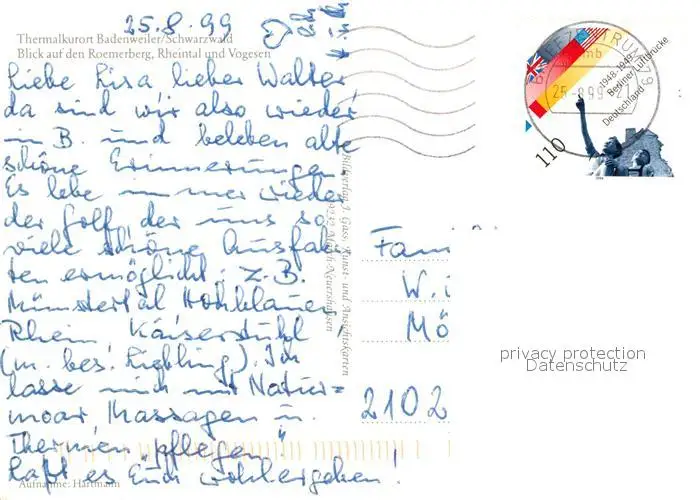 25.8.99
Thermalkurort Badenweiler/Schwarzwald
Blick auf den Roemerberg, Rheintal und Vogesen
Liebe Lisa lieber Walter
da sind wir also wieder
in B. und beleben alte
schöne Erinnerungen.
Es lebe immer wieder
der Golf, der uns so
viele schöne Ausfahr
ten ermöglicht: z.B.
Münstertal Hochblauen
Rhein, Kaiserstuhl
(m. bes. Liebling). Ich
lasse mich mit Natur=
moor, Massagen u.
Thermen "pflegen"
Laßt es Euch wohlergehen!
Aufnahme: Hartmann
Bildverlag J. Gass, Kunst- und Ansichtskarten
Neuershausen
110
1948-1949
Berliner Luftbrücke
Deutschland
BRIEFZENTRUM 79
25.-8.99-21
Fam
W.
Mö
2102
privacy protection
Datenschutz